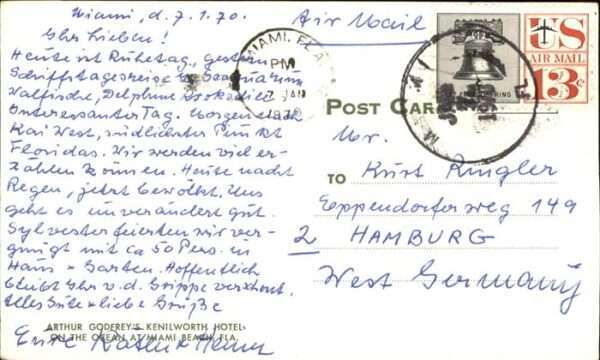 Miami, d. 7.1.70.
Ihr Lieben!
Heute ist Ruhetag, gestern
Schiffstagesreise Seaquarium
Walfische, Delphine Krokodile
Interessanter Tag. Morgen
Kai West, südlichster Punkt
Floridas. Wir werden viel er-
zählen können. Heute nacht
Regen, jetzt bewölkt. Uns
geht es unverändert gut.
Sylvester feierten wir ver-
gnügt mit ca 50 Pers. in
Haus + Garten. Hoffentlich
bleibt Ihr v. d. Grippe verschont.
Alles Gute + liebe Grüße
Eure Käthe + Heiner
ARTHUR GODFREY'S KENILWORTH HOTEL
ON THE OCEAN AT MIAMI BEACH, FLA.
Air Mail
MIAMI, FLA
PM
7 JAN
1970
US
AIR MAIL
13c
POST CARD
Mr.
TO Kurt Ringler
Eppendorferweg 149
2 HAMBURG
West Germany